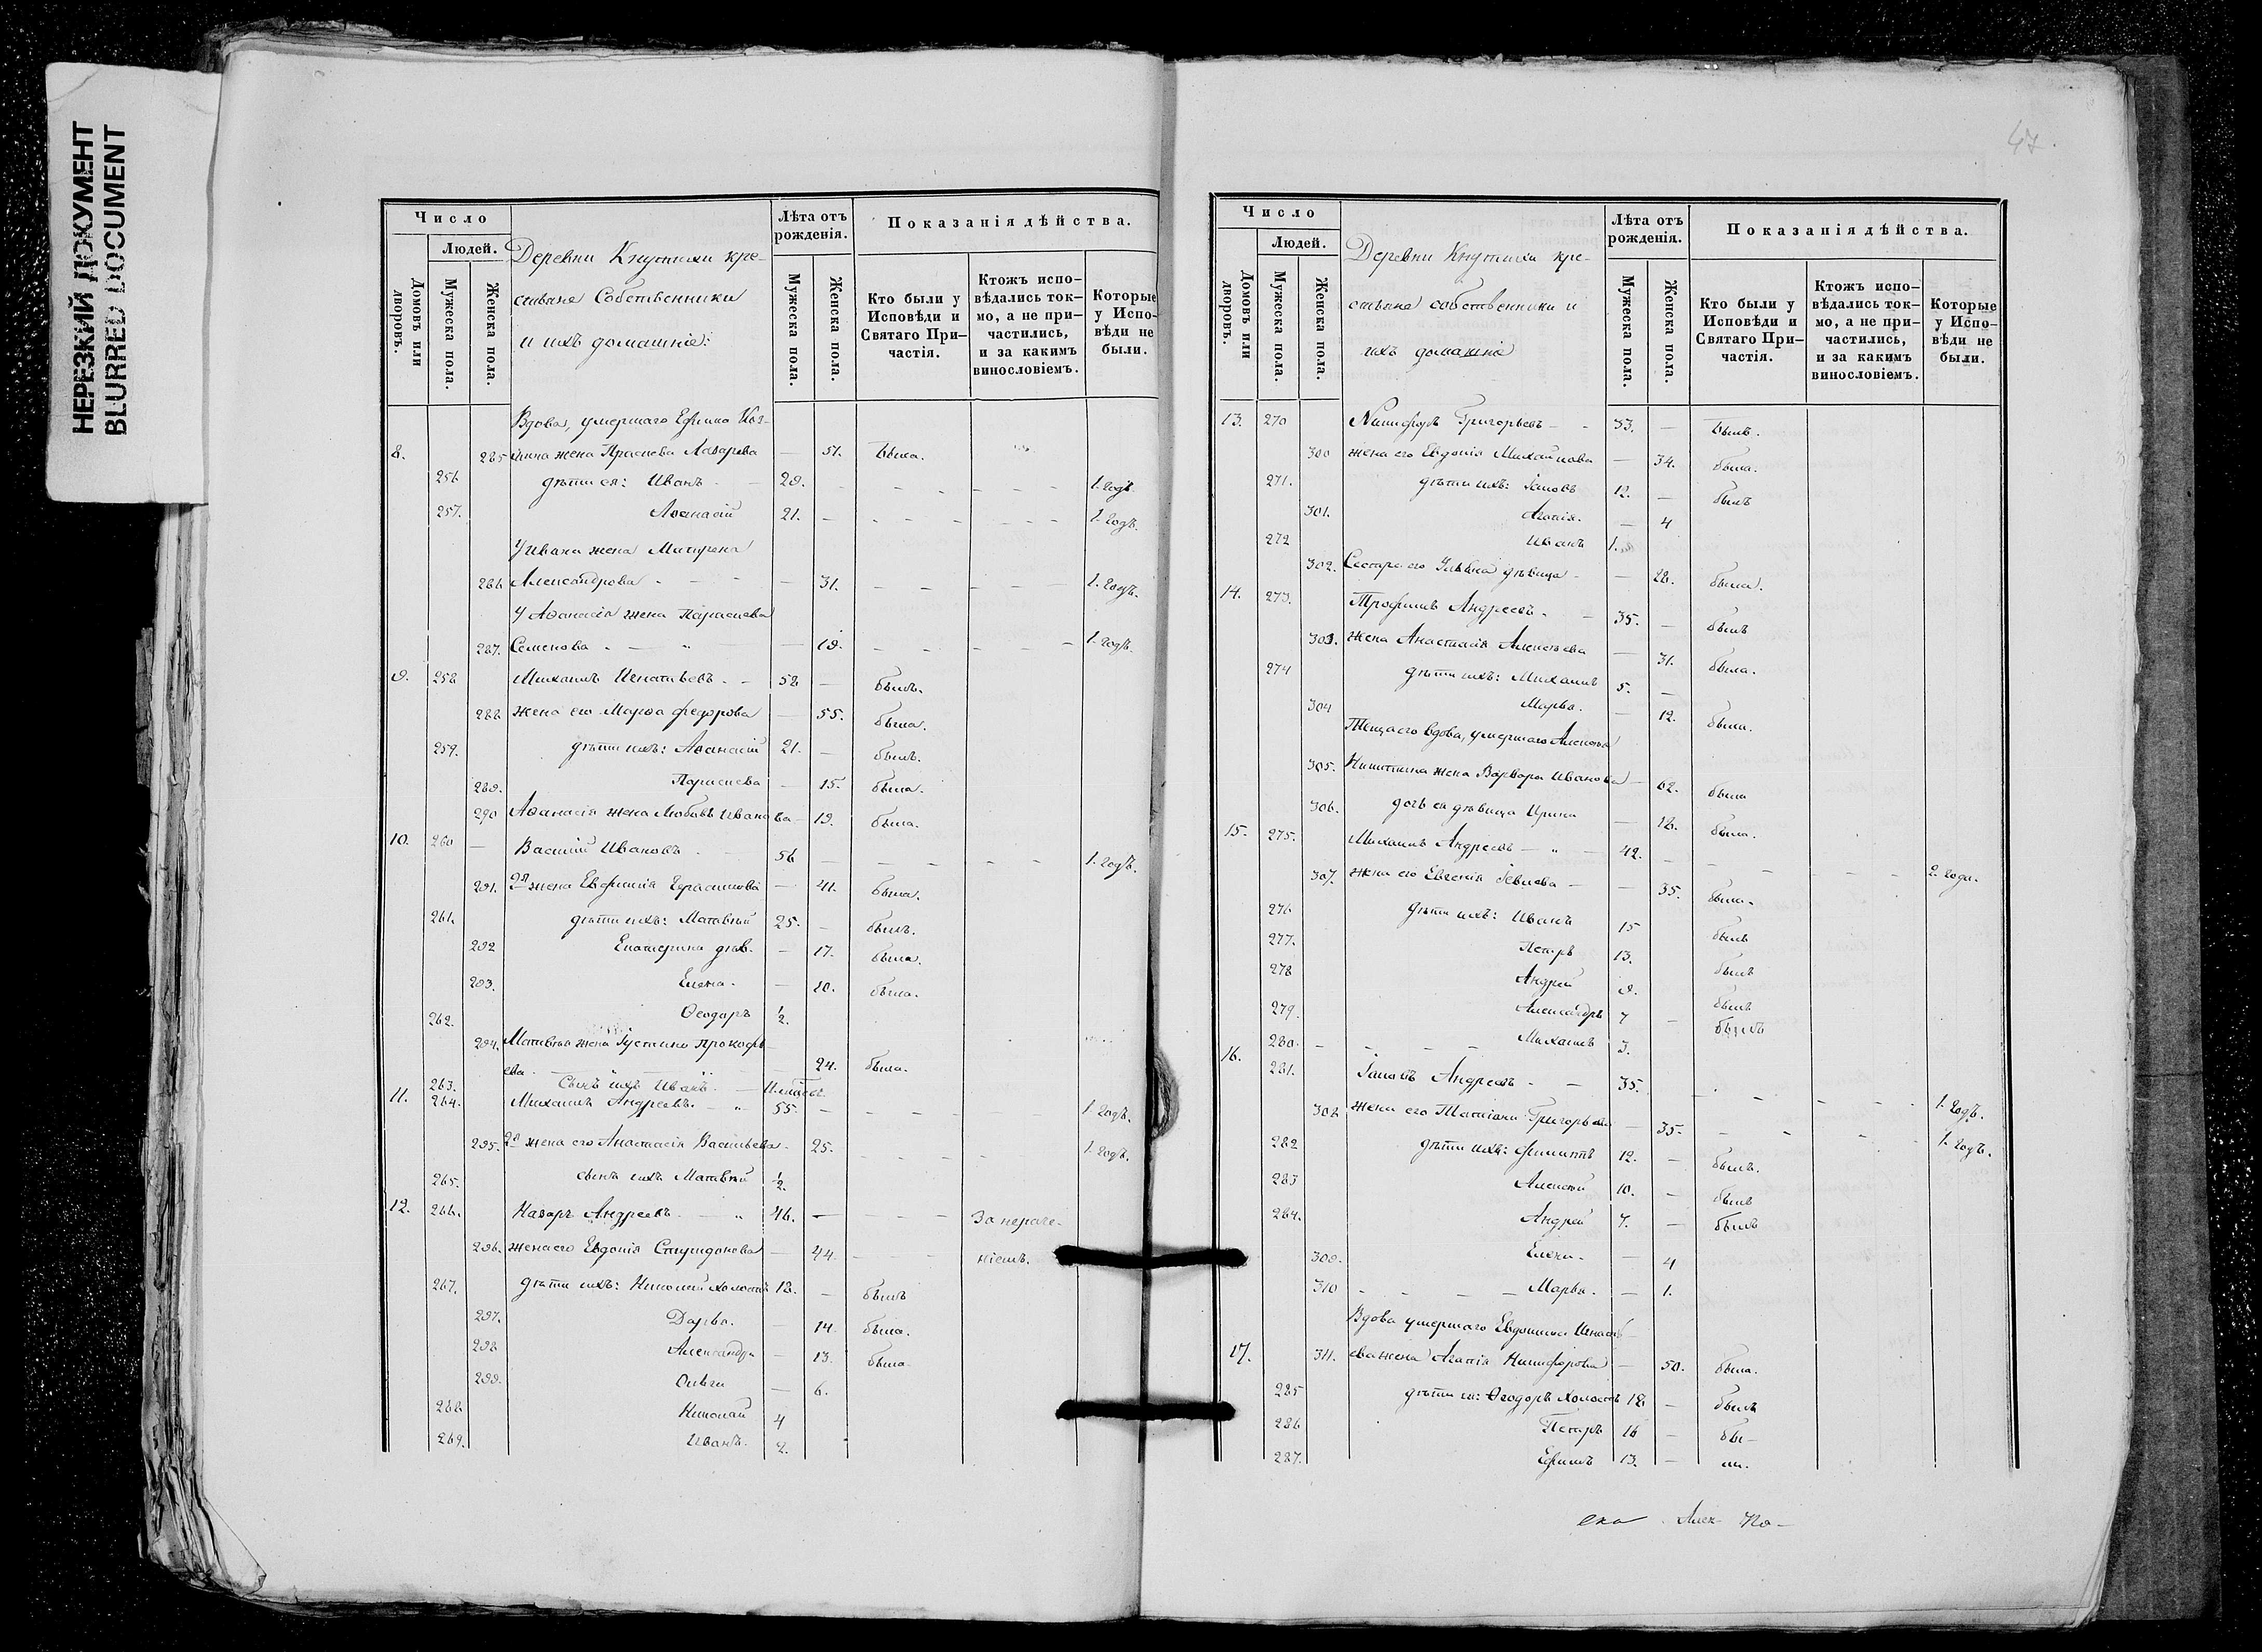 НЕРЕЗКИЙ ДОКУМЕНТ
BLURRED DOCUMENT
Число
Людей.
Домовъ или дворовъ.
Мужеска пола.
Женска пола.
Деревни Кнутихи кре-
стьяне Собственники
и ихъ домашніе:
Лѣта отъ рожденія.
Мужеска пола.
Женска пола.
Показанія дѣйства.
Кто были у Исповѣди и Святаго При-частія.
Ктожъ испо-вѣдались ток-мо, а не при-частились, и за какимъ винословіемъ.
Которые у Испо-вѣди не были.
Вдова, умершаго Ефима Коз-
8. 285 мина жена Праскева Лазарева — 51. была.
256 дѣти ея: Иванъ 29. 1. годъ.
257. Аѳанасій 21. — 1. годъ.
У Ивана жена Матрена
286 Александрова — 31. 1. годъ.
У Аѳанасія жена Параскева
287. Семенова — 19. 1. годъ.
9. 258 Михаилъ Игнатьевъ 58 — былъ.
288 жена его Марѳа Федорова — 55. была.
259. дѣти ихъ: Аѳанасій 21. — былъ.
289. Параскева — 15. была.
290 Аѳанасія жена Любовь Иванова — 19. была.
10. 260 — Василій Ивановъ 56 — 1. годъ.
291. 2я жена Евфимія Герасимова — 41. была.
261. дѣти ихъ: Матвѣй 25. — былъ.
292 Екатерина дѣв. — 17. была.
293. Елена — 10. была.
262. Ѳеодоръ 1/2.
294. Матвѣя жена Іустина Прокофь-
ева 24. была.
263. Сынъ ихъ Иванъ
11. 264. Михаилъ Андреевъ 55. — 1. годъ.
295. 2я жена его Анастасія Васильева 25. 1. годъ.
265. сынъ ихъ Матвѣй 1/2.
12. 266. Назаръ Андреевъ 46. — За нераче-
296. жена его Евдокія Спиридонова — 44 ніемъ.
267. дѣти ихъ: Николай холостъ 18. — былъ
297. Дарья. — 14 была.
298 Александра — 13. была
299. Ольга — 6.
268 Николай 4
269. Иванъ. 2.
47
Число
Людей.
Домовъ или дворовъ.
Мужеска пола.
Женска пола.
Деревни Кнутихи кре-
стьяне собственники и
ихъ домашніе
Лѣта отъ рожденія.
Мужеска пола.
Женска пола.
Показанія дѣйства.
Кто были у Исповѣди и Святаго При-частія.
Ктожъ испо-вѣдались ток-мо, а не при-частились, и за какимъ винословіемъ.
Которые у Испо-вѣди не были.
13. 270 Никифоръ Григорьевъ 33. — былъ.
300 жена его Евдокія Михайлова — 34. была.
271. дѣти ихъ: Іаковъ 12. — былъ
301. Агапія. — 4
272 Иванъ 1.
302. Сестра его Ульяна дѣвица — 28. была.
14. 273. Трофимъ Андреевъ 35. — былъ
303. жена Анастасія Алексѣева — 31. была.
274 дѣти ихъ: Михаилъ 5. —
304 Марья. — 12. была.
Теща его вдова, умершаго Алексѣя
305. Никитина жена Варвара Иванова — 62. была
306. дочь ея дѣвица Ирина — 18. была.
15. 275. Михаилъ Андреевъ 42. — 2. года.
307. жена его Евгенія — 35. была.
276 дѣти ихъ: Иванъ 15 былъ
277. Петръ 13. былъ
278 Андрей 9. былъ
279. Александръ 7 — былъ
280. Михаилъ 3.
16. 281. Іаковъ Андреевъ 35. 1. годъ.
308 жена его Татіана Григорьева — 35. 1. годъ.
282 дѣти ихъ: Филиппъ 12. — былъ.
283 Алексѣй 10. — былъ
284. Андрей 7. — былъ
309. Елена. — 4
310 Марья. — 1.
Вдова умершаго Евдокима Игнать-
17. 311. ева жена Агапія Никифорова — 50. была.
285 дѣти ея: Ѳеодоръ холостъ 18 — былъ
286 Петръ 16 — бы-
287. Ефимъ 13. — ли.